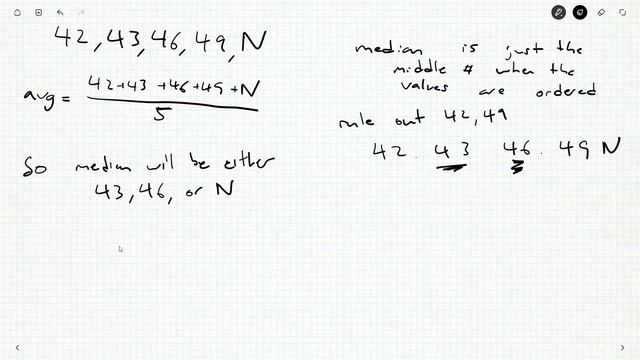 42, 43, 46, 49, N
avg = 42+43+46+49+N
5
So median will be either
43, 46, or N
median is just the
middle # when the
values are ordered
rule out 42, 49
42 . 43 46 . 49 N